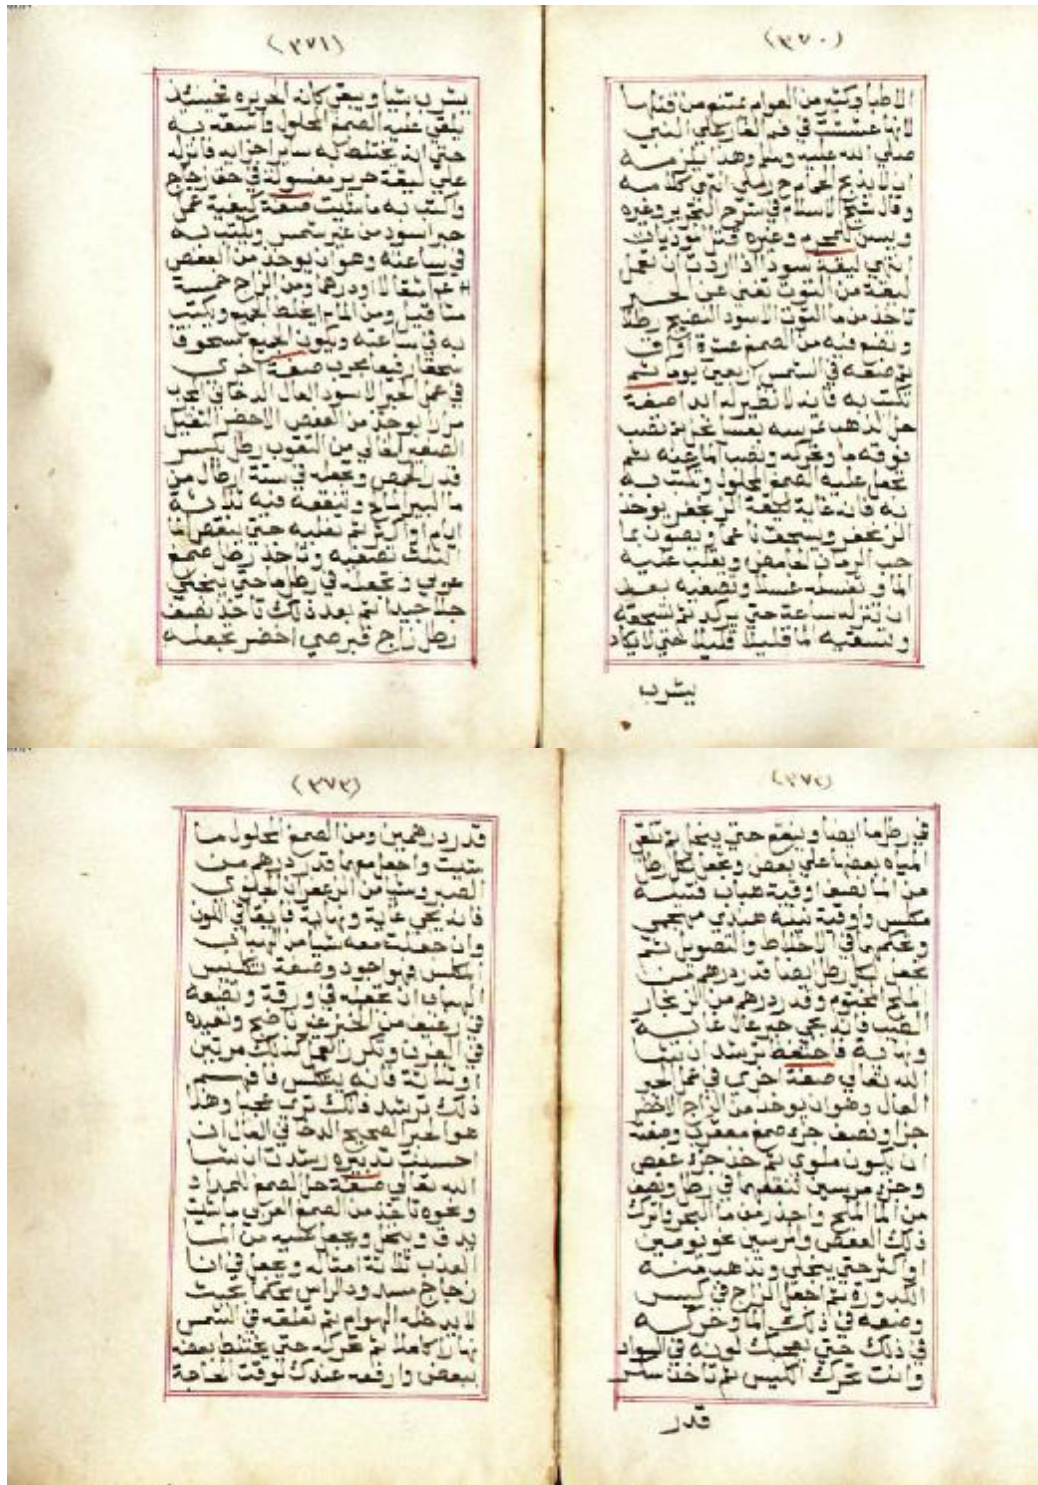 (٣٧٠)
الاطبا وكثير من العوام يمتنع من قتلها
لانها عششت في فم الغار علي النبي
صلي الله عليه وسلم وهذا يلزمه
ان لا يذبح الحمام رملي انتهي كلامه
وقال شيخ الاسلام في شرح التحرير وغيره
ويسن لمحرم وغيره قتل موذيات
انتهي ليقة سودا اذا اردت ان تعمل
ليقة من التوت تغني عن الحبر
تاخذ من ما التوت الاسود النضيج رطلا
وتضع فيه من الصمغ عشرة اواق
وتضعه في الشمس اربعين يوما ثم
تكتب به فانه لا نظير له ابدا صفة
حل الذهب
فوقه ما وتحركه وتصب الما عنه ثم
تجعل عليه الصمغ المحلول وتكتب به
به فانه غاية ليقة الزنجفر يوخذ
الزنجفر ويسحق ناعما ويصول بما
حب الرمان الحامض ويقلب عليه
الما وتغسله غسلا وتصفيه بعد
ان تتركه ساعة حتي يركد ثم تسحقه
وتسقيه الما قليلا قليلا حتي لا يكاد
يشرب
(٣٧١)
يشرب شيا ويبقي كانه الحريره فحينئذ
يلقي عليه الصمغ المحلول واسقه به
حتي انه يختلط به ساير اجزايه فانزله
علي ليقة حرير مغسولة في حق زجاج
واكتب به ما شيت صفة كيفية عمل
حبر اسود من غير شمس ويكتب به
في ساعته وهو ان يوخذ من العفص
مثقالا او درهما ومن الزاج خمسة
مثاقيل ومن الماء يخلط الجميع ويكتب
به في ساعته ويكون الجميع مسحوقا
سحقا رفيعا مجرب صفة اخري
في عمل الحبر الاسود العال الدخاني مجرب
مرارا يوخذ من العفص الاخضر الثقيل
الصغير الخالي من الثقوب رطل يكسر
قدر الحمص وتجعله في ستة ارطال من
ما البير المالح وتنقعه فيه ثلاثة
ايام او اكثر ثم تغليه حتي ينقص الما
الثلث تصفيه وتاخذ رطل صمغ
عربي وتجعله في رطل ما حتي ينحل
حلا جيدا ثم بعد ذلك تاخذ نصف
رطل زاج قبرصي اخضر تجعله
(٣٧٢)
في رطل ما ايضا وينقع حتي ينحل ثم تلقي
المياه بعضها علي بعض وتجعل لكل رطل
من الما نصف اوقية هباب
مكلس واوقية
وتحكم ما في الاخلاط والتصويل ثم
تجعل لكل رطل ايضا قدر درهم من
الملح المختوم وقدر درهم من الزنجار
الطيب فانه يجي حبر عال غاية
ونهاية فاحتفظه ترشد ان شا
الله تعالي صفة اخري في عمل الحبر
العال وهو ان يوخذ من الزاج الاخضر
جزا ونصف جزء صمغ وصفته
ان يكون ملوي ثم خذ جزء عفص
وجزء مرسين تنقعهما في رطل ونصف
من الما المالح واحذر من ما البحر واترك
ذلك العفص والمرسين نحو يومين
او اكثر حتي ينحلي وتذهب منه
الكدورة ثم اجعل الزاج في كيس
وضعه في ذلك الما وحركه
في ذلك حتي يعجبك لونه في السواد
وانت تحرك الكيس ثم تاخذ سكر
قدر
(٣٧٣)
قدر درهمين ومن الصمغ المحلول ما
شيت واجعل معهما قدر درهم من
الصبر وشيا من الزعفران
فانه يجي غاية ونهاية فايقا في اللون
وان جعلت معه شيا من الهباب
المكلس فهو اجود وصفة تكليس
الهباب ان تجعله في ورقة وتضعه
في رغيف من الخبز غير ناضج وتخبزه
في الفرن وتكرر العمل كذلك مرتين
او ثلاثة فانه يتكلس فافهم
ذلك ترشد فانك تري عجبا وهذا
هو الحبر الصحيح الدخاني العال ان
احسنت تدبيره رشدت ان شا
الله تعالي صفة حل الصمغ للمداد
ونحوه تاخذ من الصمغ العربي ما شيت
يدق وينخل ويجعل عليه من الما
العذب ثلاثة امثاله ويجعل في انا
زجاج مسدود الراس محكما بحيث
لا يدخله الهوام ثم تعلقه في الشمس
نهارا كاملا ثم تحركه حتي يختلط بعضه
ببعض وارفعه عندك لوقت الحاجة